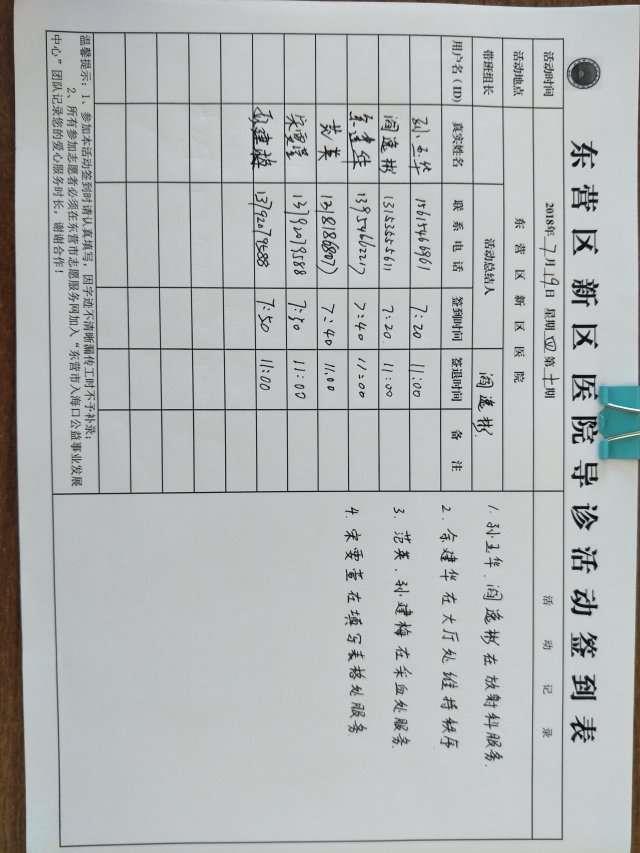 东营区新区医院导诊活动签到表
活动时间 2018年7月19日 星期四 第十期
活动地点 东营区新区医院
带班组长 活动总结人 阎逸彬
用户名(ID) 真实姓名 联系电话 签到时间 签退时间 备注
孙玉华 15615466961 7:20 11:00
阎逸彬 13153555611 7:20 11:00
余建华 13954662217 7:40 11:00
范英 7:40 11.00
宋雯萱 13792079588 7:50 11:00
孙建梅 7:50 11:00
温馨提示:1、参加本活动签到时请认真填写,因字迹不清晰漏传工时不予补录;
2、所有参加志愿者必须在东营市志愿服务网加入“东营市入海口公益事业发展
中心”团队记录您的爱心服务时长,谢谢合作!
活动记录
1.孙玉华、阎逸彬在放射科服务.
2.余建华在大厅处维持秩序
3.范英、孙建梅在采血处服务.
4.宋雯萱在填写表格处服务